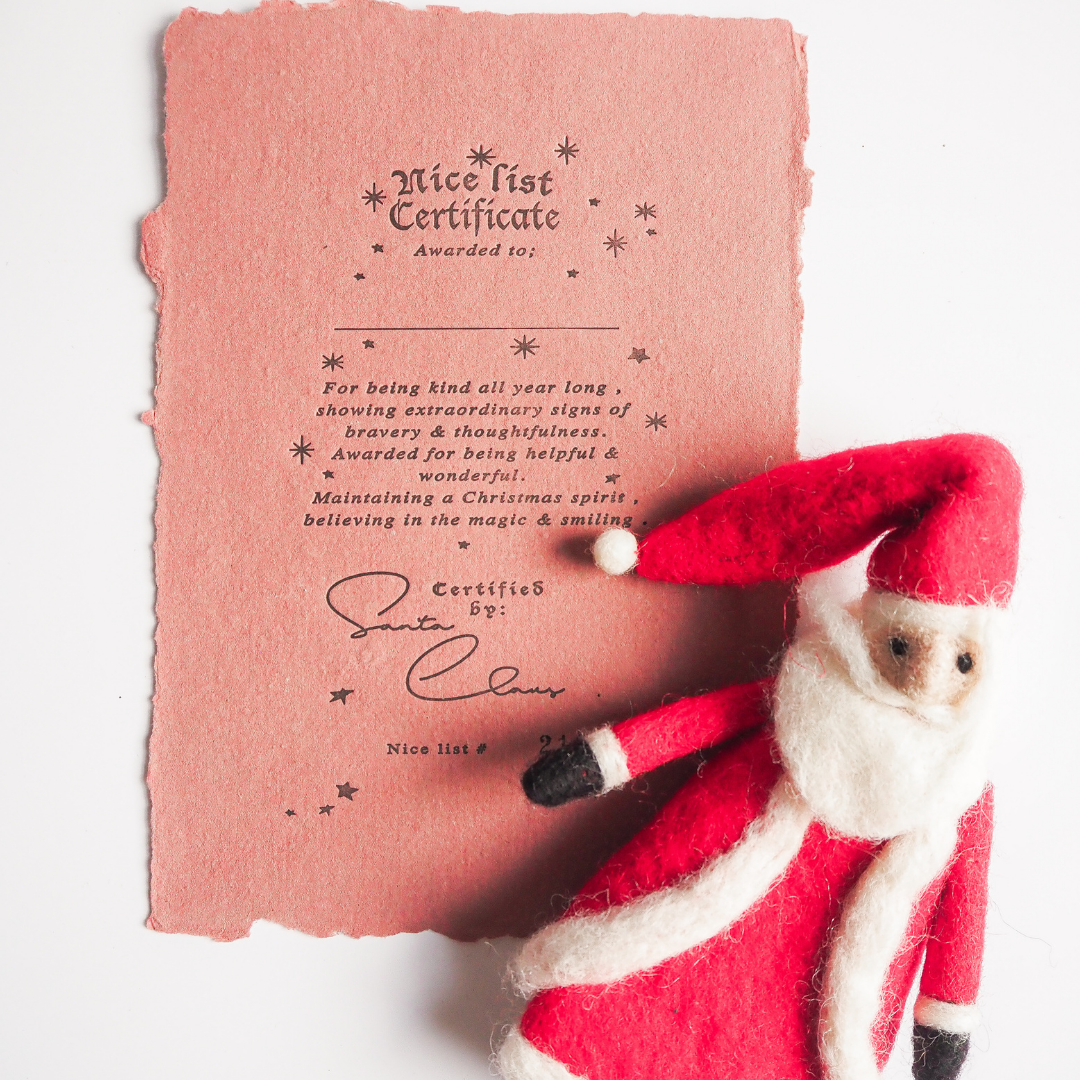 Nice list
Certificate
Awarded to;
For being kind all year long ,
showing extraordinary signs of
bravery & thoughtfulness.
Awarded for being helpful &
wonderful.
Maintaining a Christmas spirit ,
believing in the magic & smiling .
Certified
by:
Santa
Claus .
Nice list #